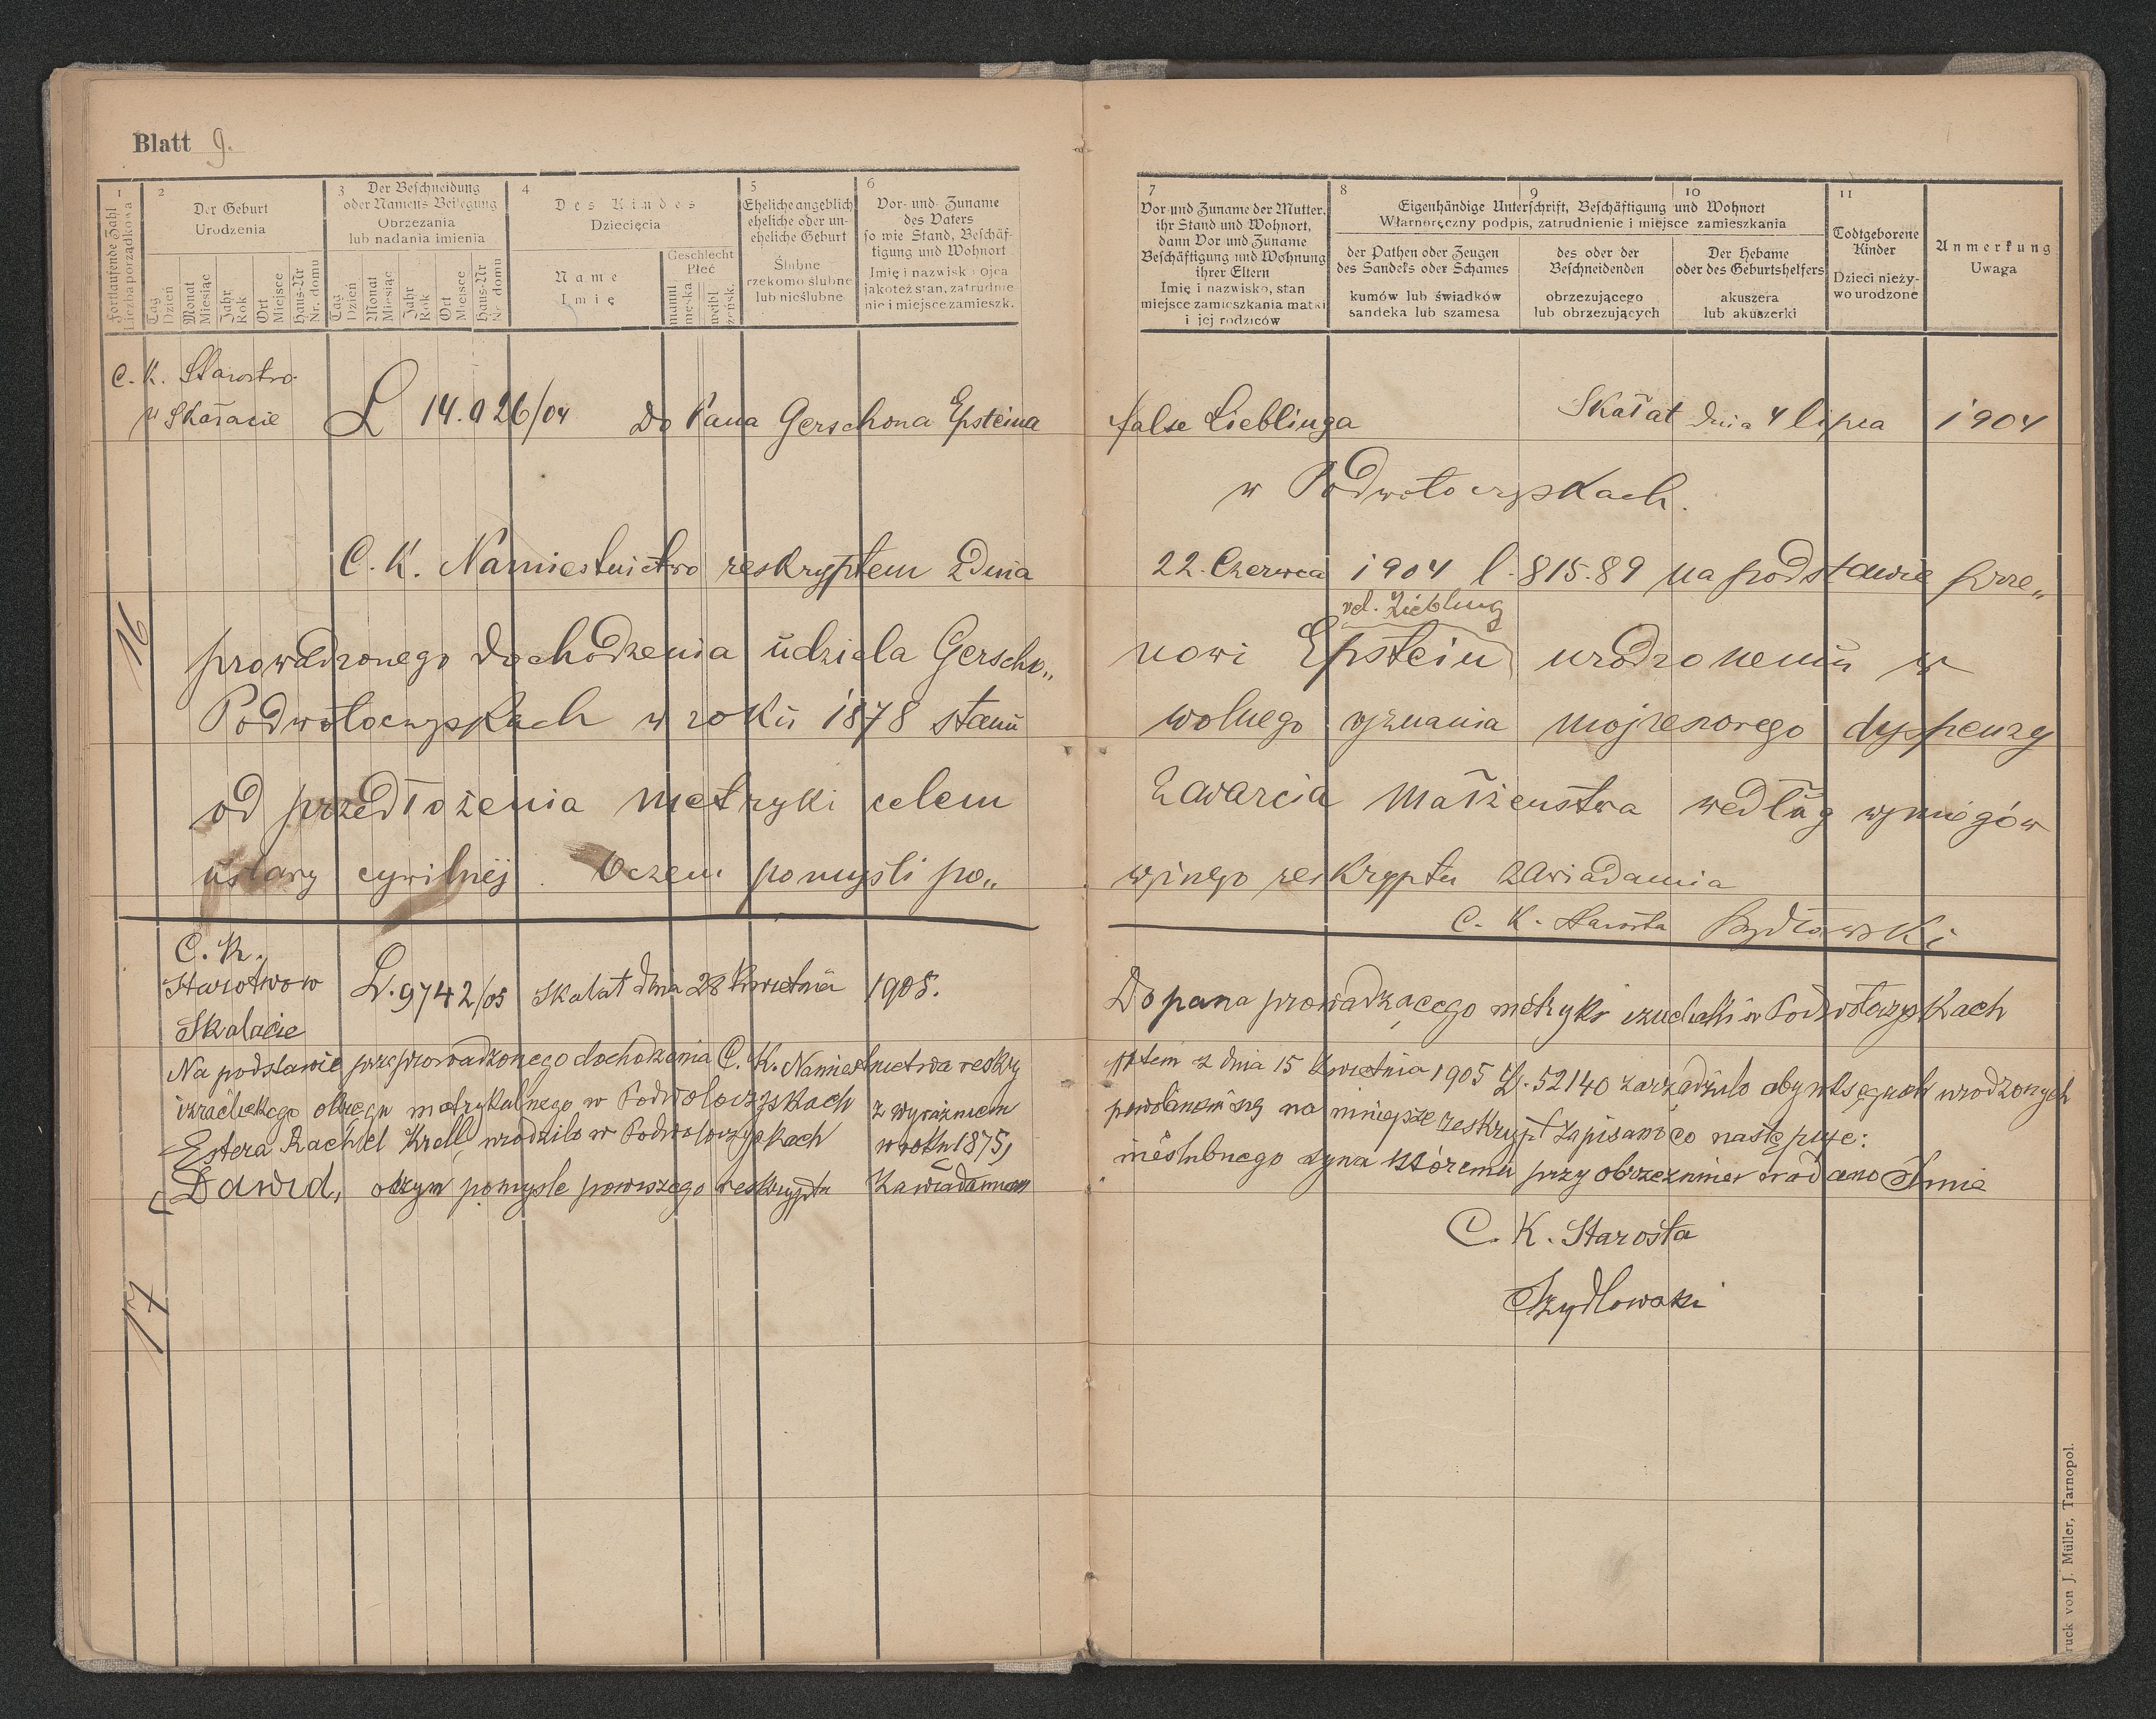 Blatt 9.
1
Fortlaufende Zahl
Liczba porządkowa
2
Der Geburt
Urodzenia
Tag
Dzień
Monat
Miesiąc
Jahr
Rok
Ort
Miejsce
Haus-Nr
Nr. domu
3 Der Beschneidung
oder Namens-Beilegung
Obrzezania
lub nadania imienia
Tag
Dzień
Monat
Miesiąc
Jahr
Rok
Ort
Miejsce
Haus-Nr
Nr. domu
4
Des Kindes
Dziecięcia
Name
Imię
Geschlecht
Płeć
männl.
męska
weibl.
żeńsk.
5
Eheliche angeblich
eheliche oder un-
eheliche Geburt
Ślubne
rzekomo ślubne
lub nieślubne
6
Vor- und Zuname
des Vaters
so wie Stand, Beschäf-
tigung und Wohnort
Imię i nazwisko ojca
jakoteż stan, zatrudnie
nie i miejsce zamieszk.
7
Vor- und Zuname der Mutter,
ihr Stand und Wohnort,
dann Vor und Zuname
Beschäftigung und Wohnung
ihrer Eltern
Imię i nazwisko, stan
miejsce zamieszkania matki
i jej rodziców
8 9 10
Eigenhändige Unterschrift, Beschäftigung und Wohnort
Własnoręczny podpis, zatrudnienie i miejsce zamieszkania
der Pathen oder Zeugen
des Sandeks oder Schames
kumów lub świadków
sandeka lub szamesa
des oder der
Beschneidenden
obrzezującego
lub obrzezujących
Der Hebame
oder des Geburtshelfers
akuszera
lub akuszerki
11
Todtgeborene
Kinder
Dzieci nieży-
wo urodzone
Anmerkung
Uwaga
C. K. Starostwo
w Skałacie L 14.026/04 Do Pana Gerschona Epsteina
false Lieblinga Skałat dnia 4 lipca 1904
w Podwołoczyskach.
C. K. Namiestnictwo reskryptem z dnia
22. Czerwca 1904 l. 815.89 na podstawie prze„
vel. Liebling
16
prowadzonego dochodzenia udziela Gerscho„
nowi Epstein urodzonemu w
Podwołoczyskach w roku 1878 stanu
wolnego wyznania mojżeszowego dyspenzy
od przedłożenia metryki celem
zawarcia małżeństwa według wymogów
ustawy cywilnej. O czem po myśli po„
wyżnego reskryptu zawiadamia
C. K. Starosta Szydłowski
C. K.
Starostwo w
Skalacie
L. 9742/05 Skalat dnia 28 Kwietnia 1905.
Do pana prowadzącego metryki izraelicki w Podwołoczyskach
Na podstawie przeprowadzonego dochodzenia C. K. Namiestnictwa reskry
ptem z dnia 15 Kwietnia 1905 L. 52140 zarządziło aby w księgach urodzonych
izraelickego okręgu metrykalnego w Podwołoczyskach z wyraźniem
powołaniem się na niniejsze reskrypt zapisano co następuje:
Estera Rachel Krell, urodziło w Podwołoczyskach w roku 1875,
nieślubnego syna któremu przy obrzeznniu nadano Imie
Dawid, o czym po myśle powższego reskryptu zawiadamiam
C. K. Starosta
Szydłowski
17
ruck von J. Müller, Tarnopol.